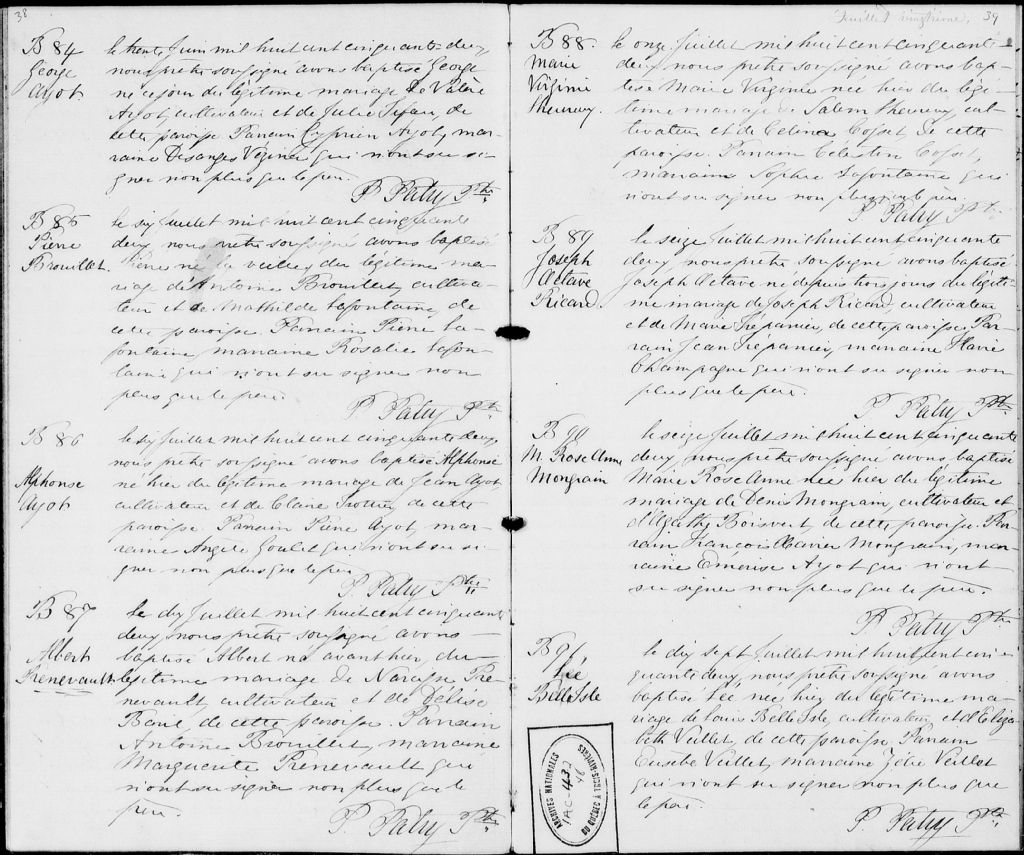 38
B 84
George
Ayot
le trente Juin mil huit cent cinquante-deux
nous prêtre soussigné avons baptisé George
né ce jour du légitime mariage de Valere
Ayot, cultivateur et de Julie de
cette paroisse. Parrain Cyprien Ayot, mar-
raine Desanges Vézina qui n'ont su si-
gner non plus que le père.
P. Patry Ptre
B 85
Pierre
Brouillet.
le six Juillet mil huit cent cinquante
deux, nous prêtre soussigné avons baptisé
Pierre né la veille, du légitime ma-
riage d'Antoine Brouillet, cultiva-
teur et de Mathilde Lafontaine, de
cette paroisse. Parrain Pierre La-
fontaine, marraine Rosalie Lafon-
taine qui n'ont su signer non
plus que le père.
P. Patry Ptre
B 86
Alphonse
Ayot
le six Juillet mil huit cent cinquante deux,
nous prêtre soussigné avons baptisé Alphonse
né hier du légitime mariage de Jean Ayot,
cultivateur et de Claire Trottier, de cette
paroisse. Parrain Pierre Ayot, mar-
raine Angèle Goulet qui n'ont su si-
gner non plus que le père
P. Patry Ptre
B 87
Albert
Prenevault
le dix Juillet mil huit cent cinquante
deux, nous prêtre soussigné avons
baptisé Albert né avant hier, du
légitime mariage de Narcisse Pre-
nevault, cultivateur et de Délise
de cette paroisse. Parrain
Antoine Brouillet, marraine
Marguerite Prenevault qui
n'ont su signer non plus que le
père.
P. Patry Ptre
Feuillet vingtième. 39
B 88.
Marie
Virginie
Fleurury.
le onze Juillet mil huit cent cinquante-
deux nous prêtre soussigné avons bap-
tisé Marie Virginie née hier du légi-
time mariage de Salem cul-
tivateur et de Celina Cosset de cette
paroisse. Parrain Célestin Cosset,
marraine Sophie Lafontaine qui
n'ont su signer non plus que le père.
P. Patry Ptre
B 89
Joseph
Octave
Ricard.
le seize Juillet mil huit cent cinquante
deux, nous prêtre soussigné avons baptisé
Joseph Octave né depuis trois jours du légiti-
me mariage de Joseph Ricard, cultivateur
et de Marie Trépanier, de cette paroisse. Par-
rain Jean Trépanier, marraine Flavie
Champagne qui n'ont su signer non-
plus que le père.
P. Patry Ptre
B 90
M. Rose Anne
Mongrain
le seize Juillet mil huit cent cinquante
deux, nous prêtre soussigné avons baptisé
Marie Rose Anne née hier du légitime
mariage de Denis Mongrain, cultivateur et
d'Agathe Boisvert, de cette paroisse. Par-
rain François Xavier Mongrain, mar-
raine Emérise Ayot qui n'ont
su signer non plus que le père.
P. Patry Ptre
B 91
Lée
BelleIsle
le dix sept Juillet mil huit cent cin-
quante deux, nous prêtre soussigné avons
baptisé Lée née hier du légitime ma-
riage de Louis BelleIsle, cultivateur, et d'Eliza-
beth Veillet, de cette paroisse. Parrain
Eusèbe Veillet, marraine Zélie Veillet
qui n'ont su signer non plus que
le père.
P. Patry Ptre
ARCHIVES NATIONALES
DU QUÉBEC À TROIS-RIVIÈRES